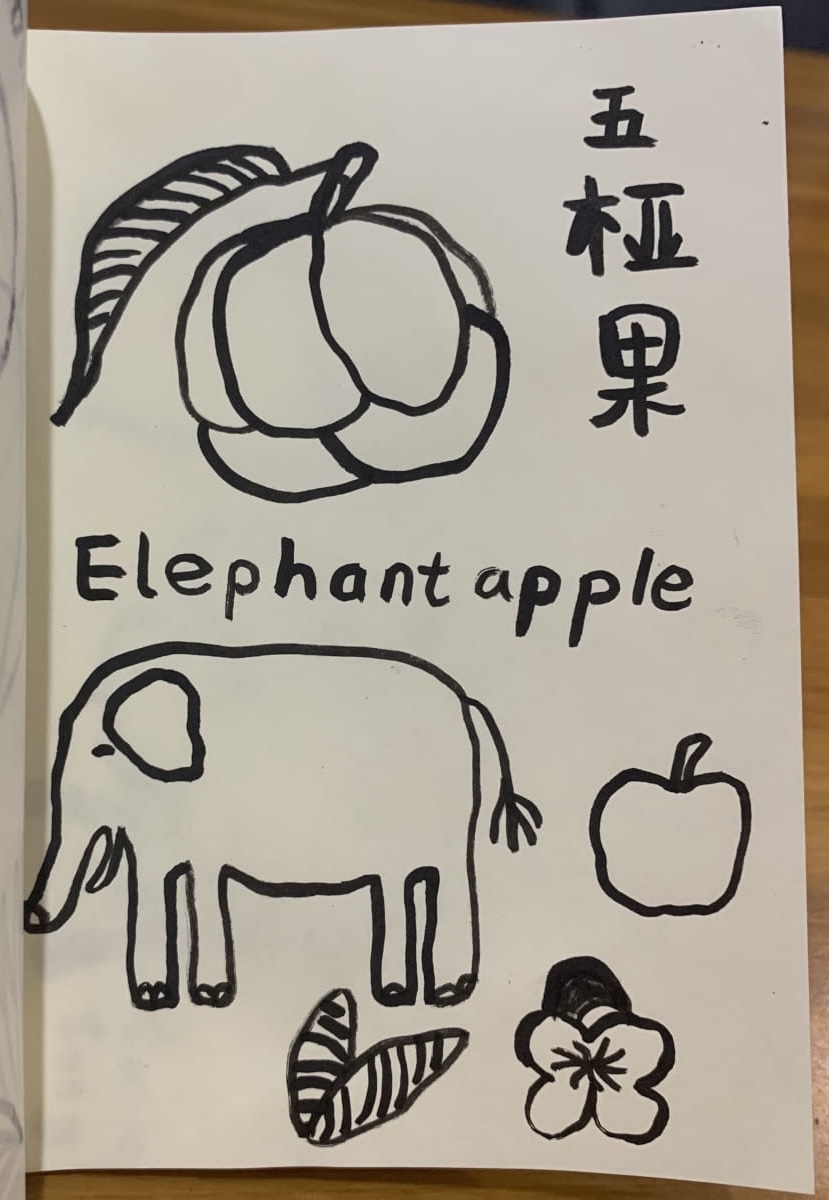 五桠果
Elephant apple